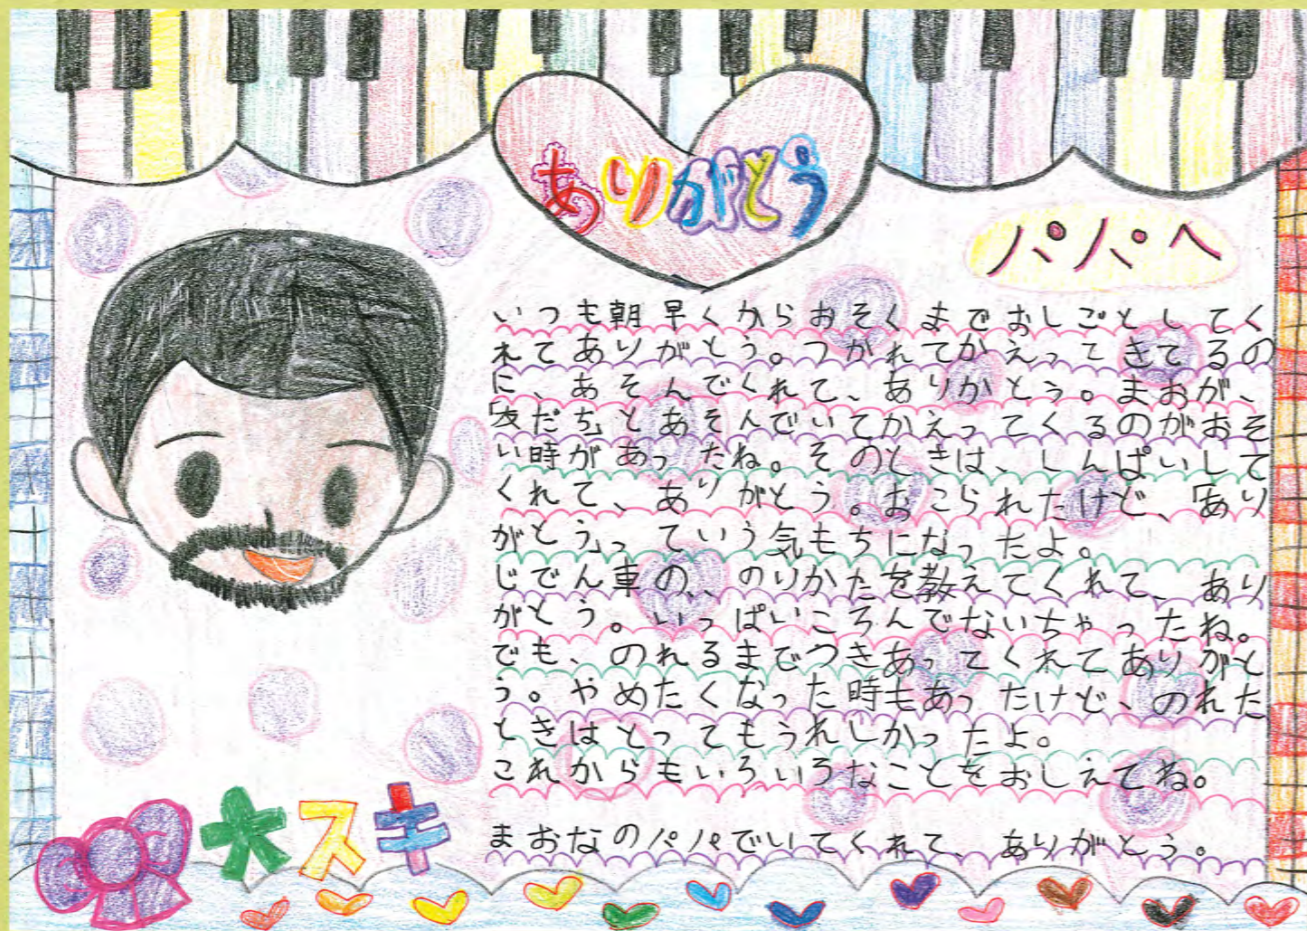 ありがとう
パパへ
いつも朝早くからおそくまでおしごとしてく
れてありがとう。つかれてかえってきてるの
に、あそんでくれて、ありがとう。まおが、
「友だち」とあそんでいてかえってくるのがおそ
い時があったね。そのときは、しんぱいして
くれて、ありがとう。おこられたけど、「あり
がとう」っていう気もちになったよ。
じでん車の、のりかたを教えてくれて、あり
がとう。いっぱいころんでないちゃったね。
でも、のれるまでつきあってくれてありがと
う。やめたくなった時もあったけど、のれた
ときはとってもうれしかったよ。
これからもいろいろなことをおしえてね。
まおなのパパでいてくれて、ありがとう。
大スキ